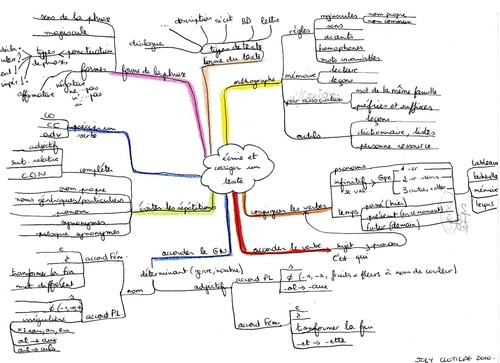 sens de la phrase
majuscule
types / ponctuation
de phrases
formes
négative
affirmative
forme de la phrase
dialogue
description
récit
BD
lettre
types de texte
forme du texte
orthographe
règles
majuscules
nom propre
nom commun
sons
accents
homophones
mots invariables
mémoire
lecture
leçons
par association
mot de la même famille
préfixes et suffixes
outils
leçons
dictionnaire, listes
personne ressource
écrire et
corriger un
texte
CO
CC
adv
préciser un
verbe
adjectif
sub. relative
CDN
complète
nom propre
noms génériques/particuliers
pronom
synonymes
presque synonymes
éviter les répétitions
conjuguer les verbes
pronoms
infinitif
se val
Gpe
temps
passé (hier)
présent (en ce moment)
futur (demain)
tableau
mémoire
leçons
accorder le verbe
sujet
pronom
c'est qui
accorder le GN
déterminant (genre, nombre)
nom
accord Fém.
e
transformer la fin
mot différent
accord PL
s
irrégulière
al → aux
ail → aux
adjectif
accord PL
s
fruits + fleurs à nom de couleur)
-al → -aux
accord Fém.
e
transformer la fin
-et → -ette
JOLY CLOTILDE 2010.